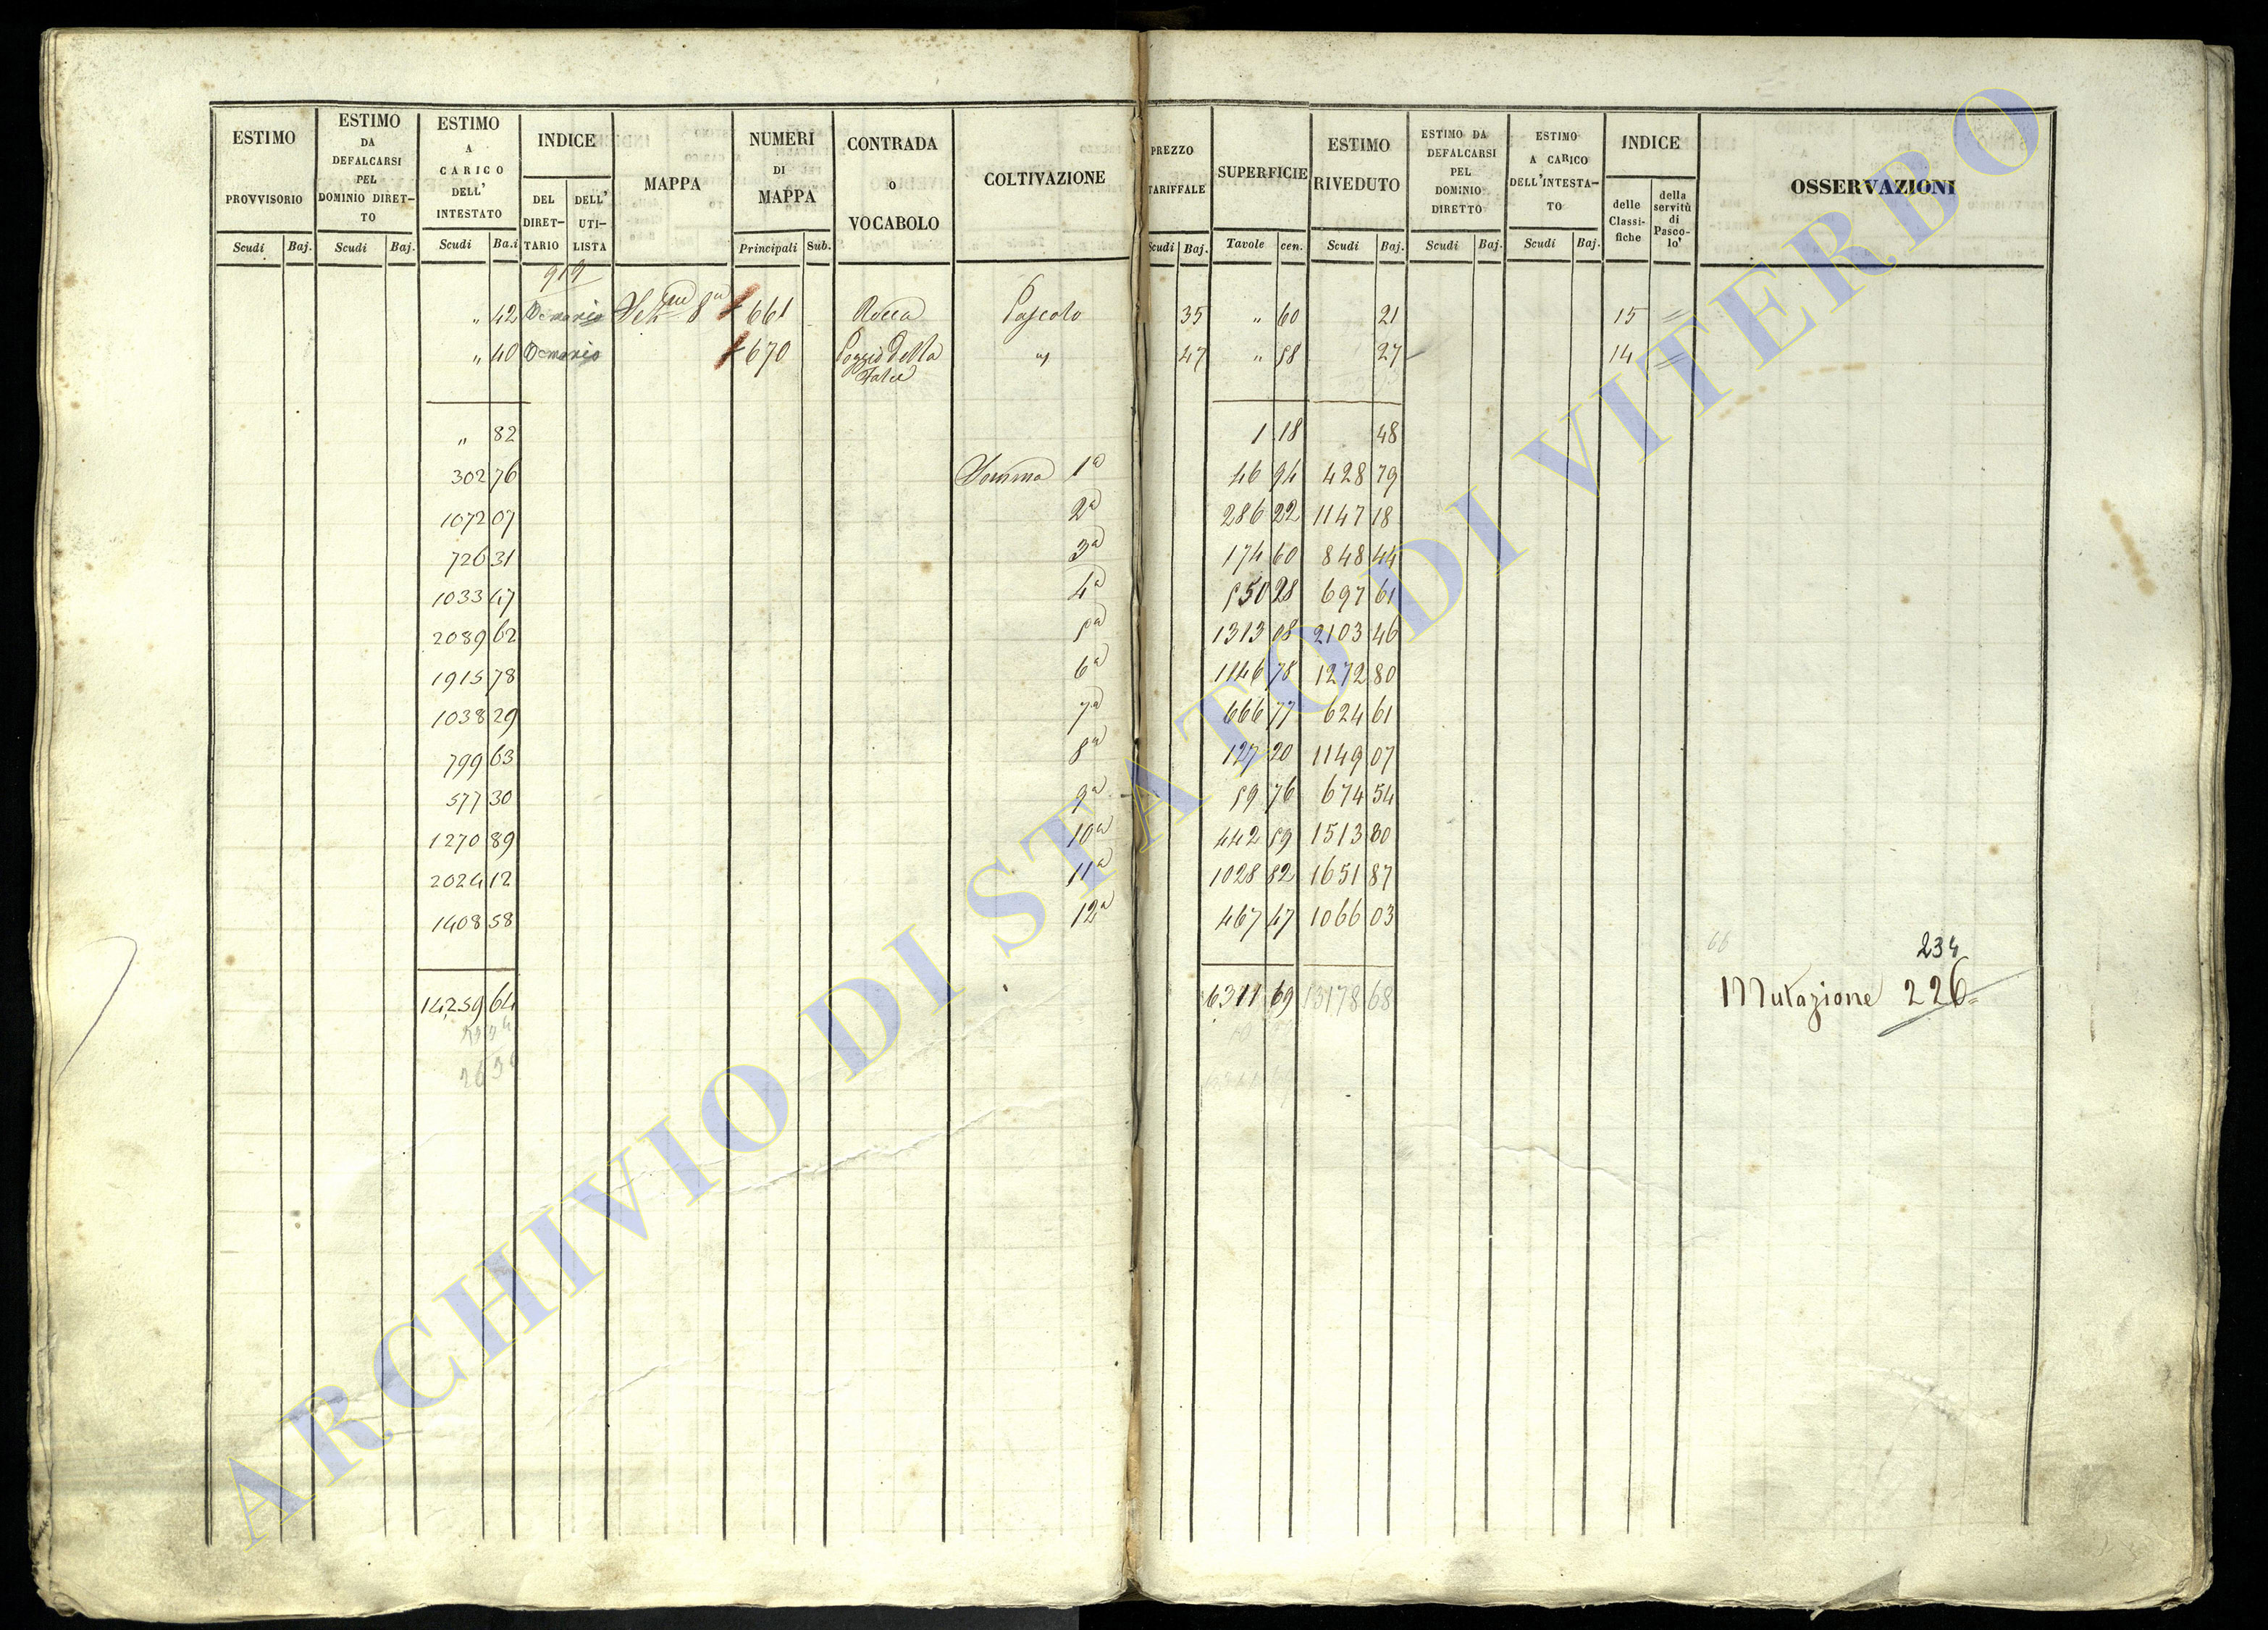 ESTIMO PROVVISORIO
Scudi Baj.
ESTIMO DA DEFALCARSI PEL DOMINIO DIRET-TO
Scudi Baj.
ESTIMO A CARICO DELL' INTESTATO
Scudi Ba.i
INDICE
DEL DIRET-TARIO
DELL' UTI-LISTA
MAPPA
NUMERI DI MAPPA
Principali Sub.
CONTRADA o VOCABOLO
COLTIVAZIONE
PREZZO TARIFFALE
Scudi Baj.
SUPERFICIE
Tavole cen.
ESTIMO RIVEDUTO
Scudi Baj.
ESTIMO DA DEFALCARSI PEL DOMINIO DIRETTO
Scudi Baj.
ESTIMO A CARICO DELL'INTESTA-TO
Scudi Baj.
INDICE
delle Classi-fiche
della servitù di Pasco-lo'
OSSERVAZIONI
919
" 42 Demanio Sez.ne 8a 661 Rocca Pascolo 35 " 60 21 15 "
" 40 Demanio 670 Poggio della Falce " 47 " 58 27 14 "
" 82 1 18 48
302 76 Somma 1a 46 94 428 79
1072 07 2a 286 22 1147 18
726 31 3a 174 60 848 44
1033 47 4a 550 28 697 61
2089 62 5a 1313 08 2103 46
1915 78 6a 1146 78 1272 80
1038 29 7a 666 77 624 61
799 63 8a 127 20 1149 07
577 30 9a 59 76 674 54
1270 89 10a 442 59 1513 80
2024 12 11a 1028 82 1651 87
1408 58 12a 467 47 1066 03
234
14259 64 6311 69 13178 68 Mutazione 226
ARCHIVIO DI STATO DI VITERBO